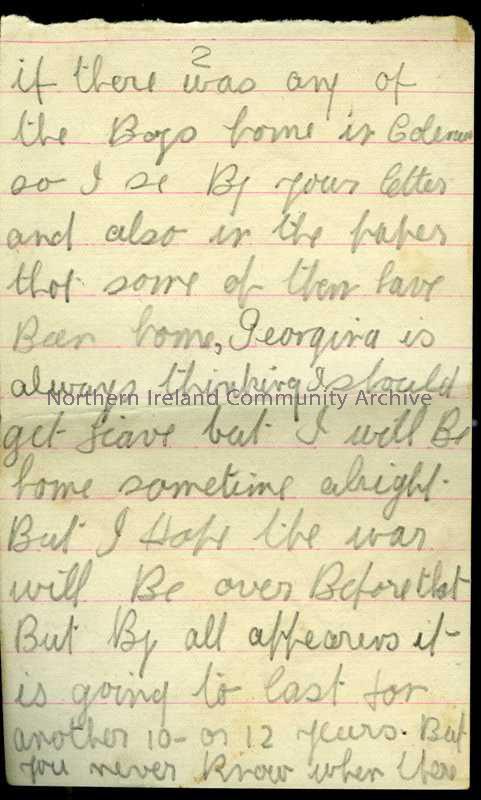 2
if there was any of
the Boys home in
so I se By your letter
and also in the paper
that some of them have
Been home, Georgina is
always thinking I should
Northern Ireland Community Archive
get leave but I will Be
home sometime alright.
But I Hope the war
will Be over Before that
But By all appearens it
is going to last for
another 10 - or 12 years. But
you never know when there